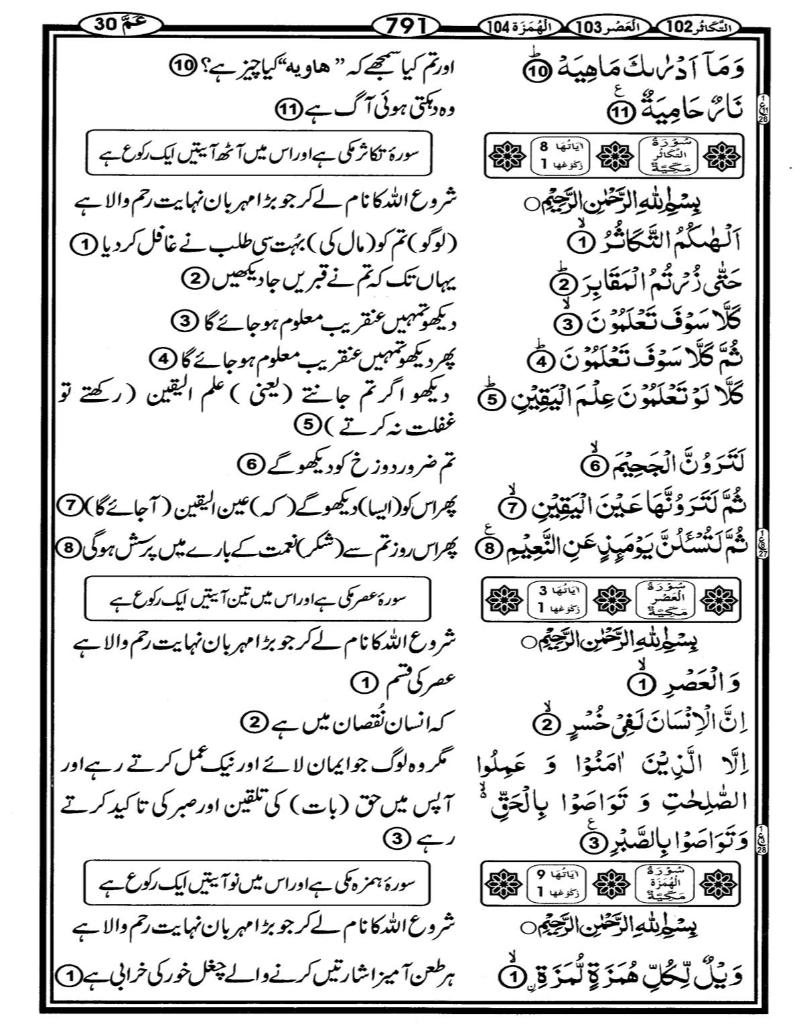 التَّكَاثُر 102 الْعَصْر 103 الْهُمَزَة 104 791 عَمَّ 30
وَمَاۤ اَدۡرٰىكَ مَاهِيَهۡ ؕ 10 اور تم کیا سمجھے کہ ”ھاویه“ کیا چیز ہے؟ 10
نَارٌ حَامِيَةٌ ع 11 وہ دہکتی ہوئی آگ ہے 11
سُوۡرَةُ التَّكَاثُرِ مَكِّيَّةٌ اٰيَاتُهَا 8 رُكُوۡعُهَا 1 سورۂ تکاثر مکی ہے اور اس میں آٹھ آیتیں ایک رکوع ہے
بِسۡمِ اللّٰهِ الرَّحۡمٰنِ الرَّحِيۡمِ ○ شروع اللہ کا نام لے کر جو بڑا مہربان نہایت رحم والا ہے
اَلۡهٰىكُمُ التَّكَاثُرُ ۙ 1 (لوگو) تم کو (مال کی) بہُت سی طلب نے غافل کر دیا 1
حَتّٰى زُرۡتُمُ الۡمَقَابِرَ ؕ 2 یہاں تک کہ تم نے قبریں جا دیکھیں 2
كَلَّا سَوۡفَ تَعۡلَمُوۡنَ ۙ 3 دیکھو تمہیں عنقریب معلوم ہو جائے گا 3
ثُمَّ كَلَّا سَوۡفَ تَعۡلَمُوۡنَ ؕ 4 پھر دیکھو تمہیں عنقریب معلوم ہو جائے گا 4
كَلَّا لَوۡ تَعۡلَمُوۡنَ عِلۡمَ الۡيَقِيۡنِ ؕ 5 دیکھو اگر تم جانتے (یعنی) علم الیقین (رکھتے تو
غفلت نہ کرتے) 5
لَتَرَوُنَّ الۡجَحِيۡمَ ۙ 6 تم ضرور دوزخ کو دیکھو گے 6
ثُمَّ لَتَرَوُنَّهَا عَيۡنَ الۡيَقِيۡنِ ۙ 7 پھر اس کو (ایسا) دیکھو گے (کہ) عین الیقین (آ جائے گا) 7
ثُمَّ لَتُسۡـَٔلُنَّ يَوۡمَٮِٕذٍ عَنِ النَّعِيۡمِ ع 8 پھر اس روز تم سے (شکر) نعمت کے بارے میں پرسش ہو گی 8
سُوۡرَةُ الۡعَصۡرِ مَكِّيَّةٌ اٰيَاتُهَا 3 رُكُوۡعُهَا 1 سورۂ عصر مکی ہے اور اس میں تین آیتیں ایک رکوع ہے
بِسۡمِ اللّٰهِ الرَّحۡمٰنِ الرَّحِيۡمِ ○ شروع اللہ کا نام لے کر جو بڑا مہربان نہایت رحم والا ہے
وَالۡعَصۡرِ ۙ 1 عصر کی قسم 1
اِنَّ الۡاِنۡسَانَ لَفِىۡ خُسۡرٍ ۙ 2 کہ انسان نُقصان میں ہے 2
اِلَّا الَّذِيۡنَ اٰمَنُوۡا وَ عَمِلُوا مگر وہ لوگ جو ایمان لائے اور نیک عمل کرتے رہے اور
الصّٰلِحٰتِ وَ تَوَاصَوۡا بِالۡحَقِّ ۙ آپس میں حق (بات) کی تلقین اور صبر کی تاکید کرتے
وَتَوَاصَوۡا بِالصَّبۡرِ ع 3 رہے 3
سُوۡرَةُ الۡهُمَزَةِ مَكِّيَّةٌ اٰيَاتُهَا 9 رُكُوۡعُهَا 1 سورۂ ہمزہ مکی ہے اور اس میں نو آیتیں ایک رکوع ہے
بِسۡمِ اللّٰهِ الرَّحۡمٰنِ الرَّحِيۡمِ ○ شروع اللہ کا نام لے کر جو بڑا مہربان نہایت رحم والا ہے
وَيۡلٌ لِّـكُلِّ هُمَزَةٍ لُّمَزَةِ ۙ 1 ہر طعن آمیز اشارتیں کرنے والے چغل خور کی خرابی ہے 1